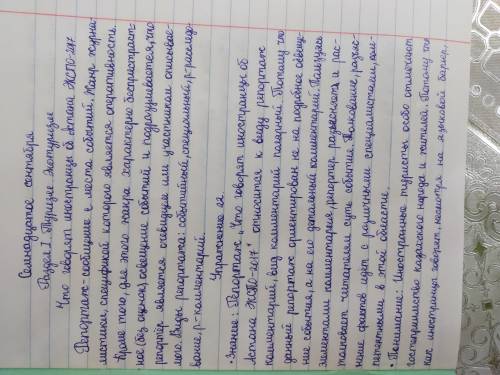 Семнадцатое сентября
Раздел I. Туризм: Экотуризм
Что говорят иностранцы об Астана ЭКСПО-2017
Репортаж-сообщение с места событий. Жанр журна-
листики, спецификой которого является оперативность.
Кроме того, для этого жанра характерно беспристраст-
ное (без оценок) освещение событий и подразумевается, что
репортёр является очевидцем или участником описывае-
мого. Виды репортажа: событийный, специальный, р-расследо-
вание, р-комментарий.
Упражнение 2.
• Знание: Репортаж "Что говорят иностранцы об
Астана ЭКСПО-2017" относится к виду репортаж
комментарий, вид комментарий полярный. Потому что
данный репортаж ориентирован не на подробное освеще-
ние события, а на его детальный комментарий. Пользуясь
элементами комментария, репортёр разъясняет и рас-
толковает читателям суть события. Толкование, разъяс-
нение фактов идёт с различными специалистами, ком-
петентными в этой области.
• Понимание: Иностранные туристы особо отмечают
гостеприимство казахского народа и жителей. Потому что
как иностранцы говорят, несмотря на языковой барьер.